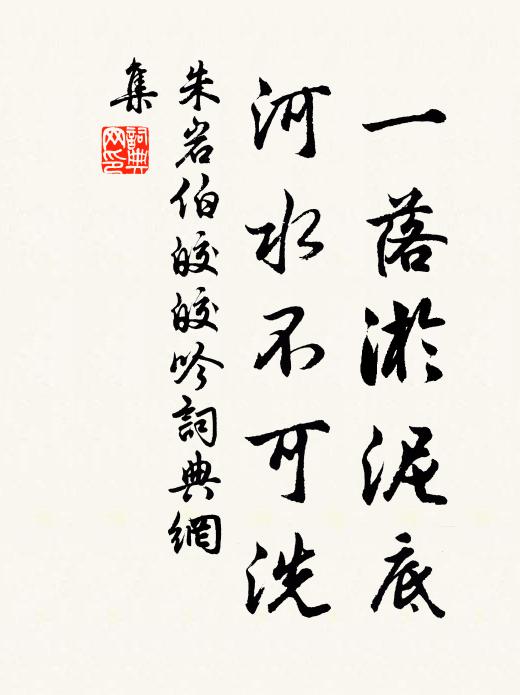 一落淤泥底
河水不可洗
朱岩伯皎皎吟詞典網
集
詞典網印